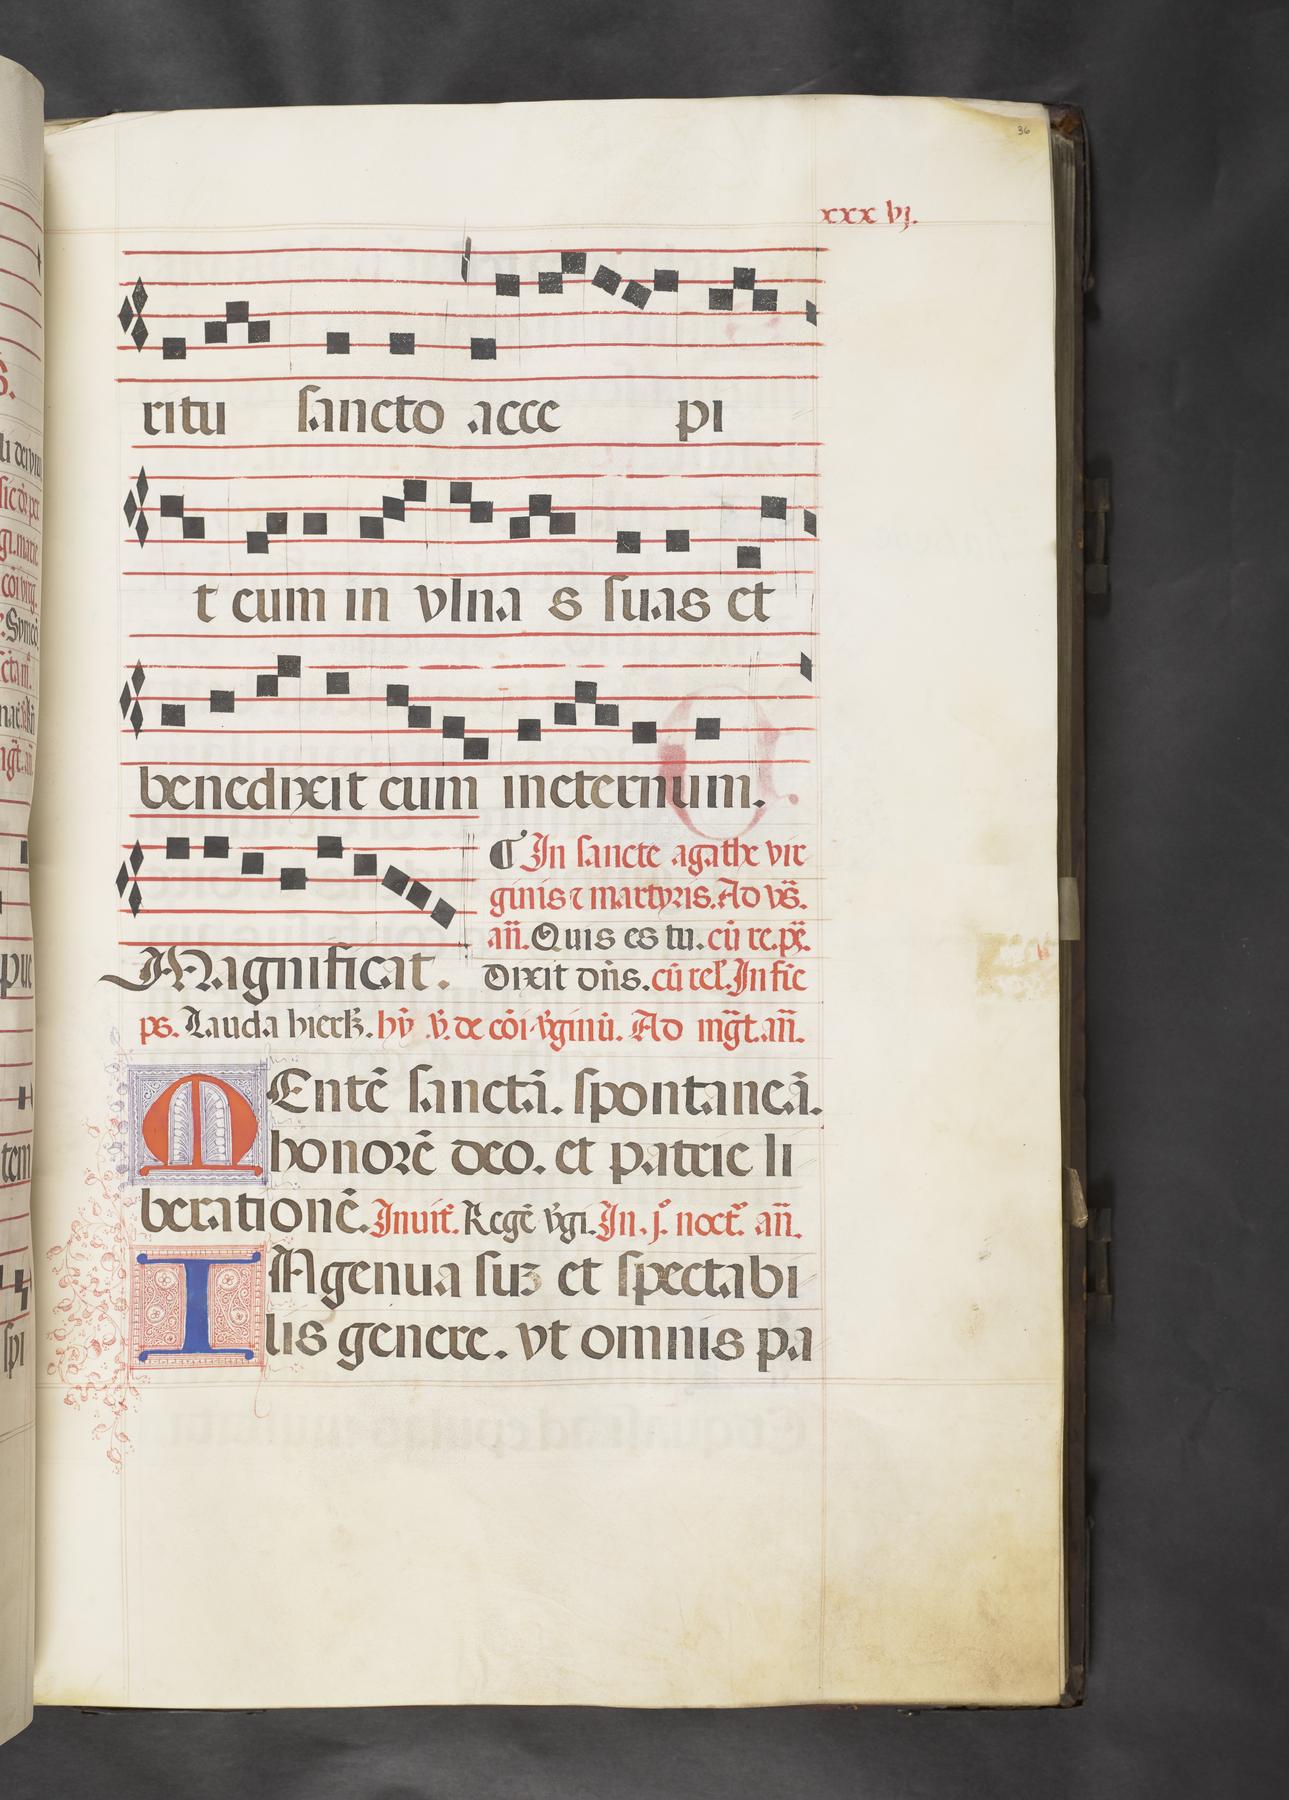 36
xxx vj.
ritu sancto acce pi
t eum in vlna s suas et
benedixit eum ineternum.
Magnificat.
In sancte agathe vir
ginis ⁊ martyris. Ad vs̄.
an̄. Quis es tu. cū re. ps̄.
Dixit dn̄s. cū rel'. In fine
ps. Lauda hierlz̄. hȳ. v̄. de cōi v̄ginū. Ad mḡt. an̄.
MEntē sanctā. spontaneā.
honorē deo. et patrie li
berationē. Inuit̄. Regē v̄gi. In. j.º noct̄º. an̄.
INgenua suꝫ et spectabi
lis genere. vt omnis pa